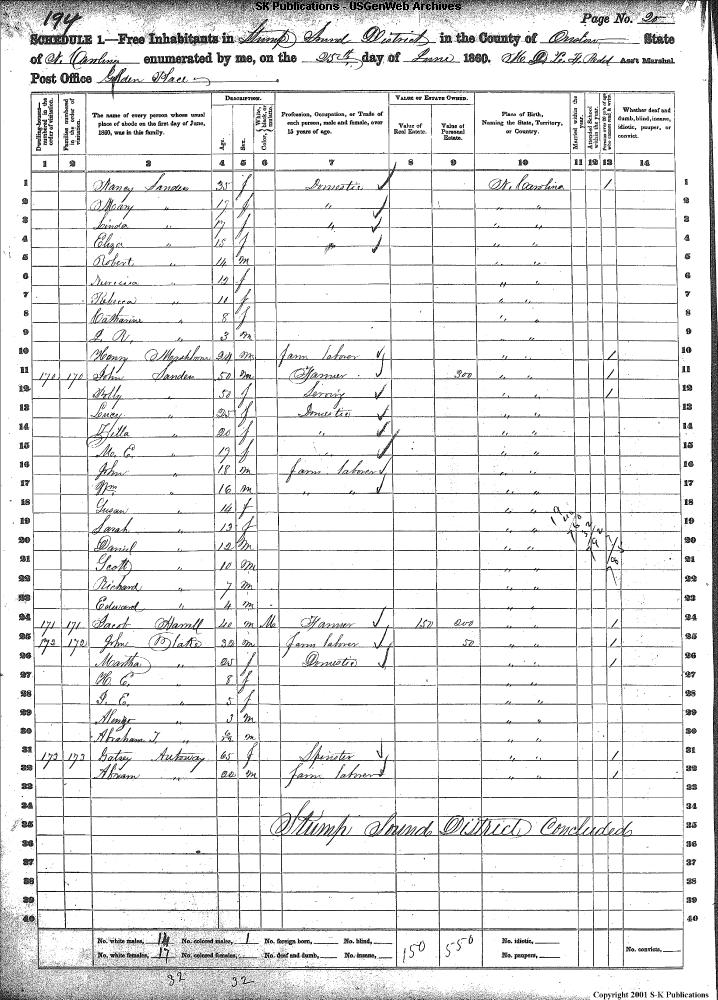 SK Publications - USGenWeb Archives
194
Page No. 20
SCHEDULE 1.—Free Inhabitants in Stump Sound District in the County of Onslow State
of N. Carolina enumerated by me, on the 25th day of June 1860. Ass't Marshal.
Post Office Golden Place
Dwelling-houses— numbered in the order of visitation.
Families numbered in the order of visitation.
The name of every person whose usual place of abode on the first day of June, 1860, was in this family.
DESCRIPTION.
Age.
Sex.
Color, White, black, or mulatto.
Profession, Occupation, or Trade of each person, male and female, over 15 years of age.
VALUE OF ESTATE OWNED.
Value of Real Estate.
Value of Personal Estate.
Place of Birth, Naming the State, Territory, or Country.
Married within the year.
Attended School within the year.
Persons over 20 y'rs of age who cannot read & write.
Whether deaf and dumb, blind, insane, idiotic, pauper, or convict.
1 2 3 4 5 6 7 8 9 10 11 12 13 14
1 Nancy Sanders 35 f Domestic N. Carolina / 1
2 Mary " 17 f " " " 2
3 Linda " 17 f " " " 3
4 Eliza " 15 f " " " 4
5 Robert " 14 m " " 5
6 " 12 f " " 6
7 Rebecca " 11 f " " 7
8 Catharine " 8 f " " 8
9 J. R. " 3 m " " 9
10 Henry 24 m farm laborer " " / 10
11 170 170 John Sanders 50 m Farmer 300 " " / 11
12 Polly " 50 f " " / 12
13 Lucy " 25 f Domestic " " 13
14 Zilla " 20 f " " " 14
15 M. E. " 19 f " " " 15
16 John " 18 m farm laborer " " 16
17 Wm " 16 m " " " " 17
18 Susan " 14 f " " 18
19 Sarah " 13 f " " 19
20 Daniel " 12 m " " 20
21 Scott " 10 m " " 21
22 Richard " 7 m " " 22
23 Edward " 4 m " " 23
24 171 171 Jacob Harrell 40 m M Farmer 150 200 " " / 24
25 172 172 John Blake 32 m farm laborer 50 " " / 25
26 Martha " 25 f Domestic " " / 26
27 H. E. " 8 f " " 27
28 J. E. " 5 f " " 28
29 Alonzo " 3 m " " 29
30 Abraham T " m " " 30
31 173 173 Autoway 65 f Spinster " " / 31
32 Abram " 22 m farm laborer " " / 32
33 33
34 34
35 Stump Sound District Concluded 35
36 36
37 37
38 38
39 39
40 40
No. white males, 14 No. colored males, 1 No. foreign born, No. blind, 150 550 No. idiotic,
No. white females, 17 No. colored females, No. deaf and dumb, No. insane, No. paupers, No. convicts,
32 32
Copyright 2001 S-K Publications